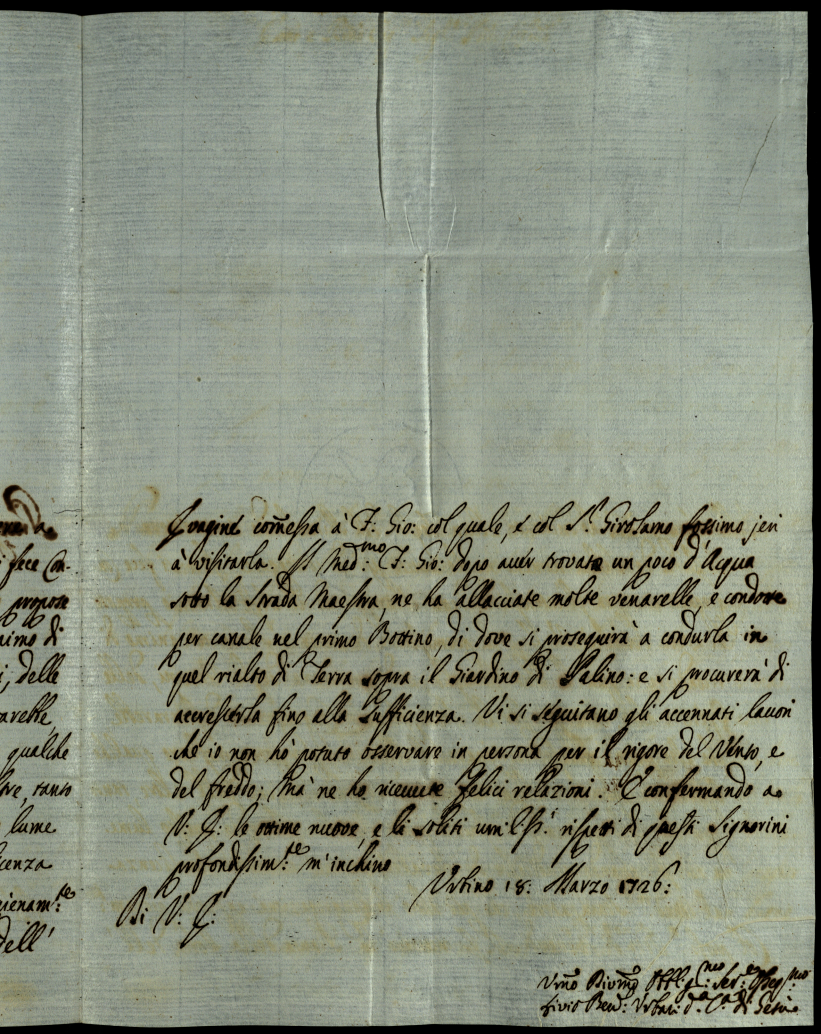 era a
fece Con-
propose
nimo di
i, delle
arelle
qualche
tre, tanto
lume
cenza
pienam:te
dell'
Imagine com̃essa à F: Gio: col quale, e col S.r Girolamo fossimo jeri
à visitarla. Il Med:mo F: Gio: dopo aver trovata un poco d'Acqua
sotto la Strada Maestra, ne ha allacciate molte venarelle, e condotte
per canale nel primo Bottino, di dove si proseguirà a condurla in
quel rialto di Terra sopra il Giardino di Palino: e si procurerà di
accrescerla fino alla Sufficienza. Vi si seguitano gli accennati lavori
che io non hò potuto osservare in persona per il rigore del Vento, e
del freddo; mà ne ho ricevute felici relazioni. E confermando a
V: E: le ottime nuove, e li soliti umiliss:i rispetti di questi Signorini
profondissim:te m'inchino
Urbino 18: Marzo 1726:
Di V: E:
Um̃o Divm̃o Obblig:mo Ser:e Osseq:mo